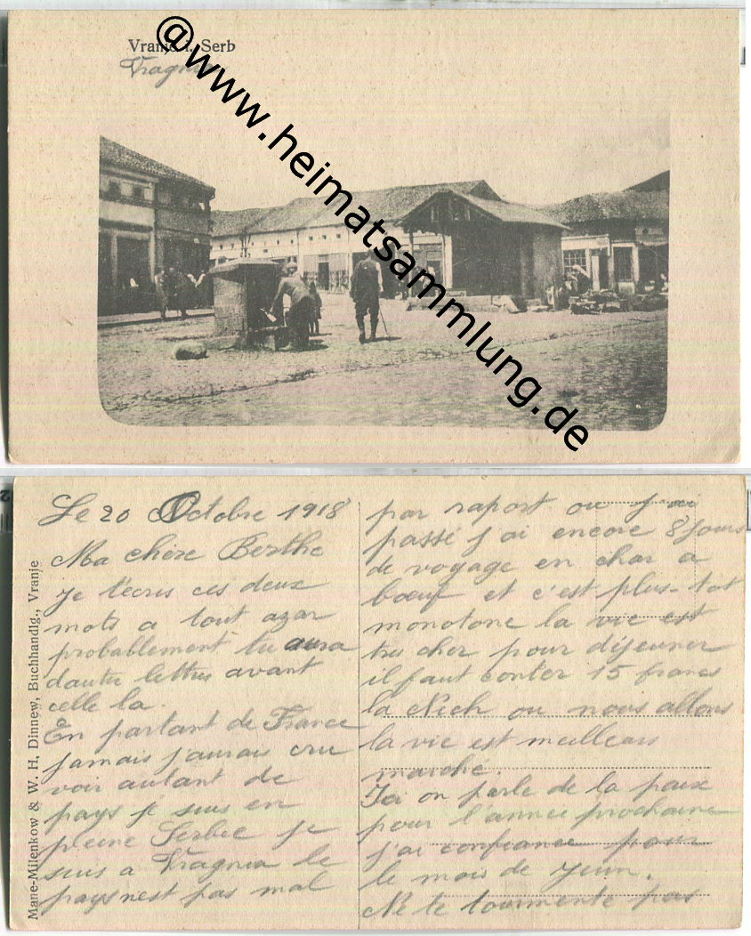 Vranje i. Serb
Vragnia
@www.heimatsammlung.de
Mane-Milenkow & W. H. Dinnew, Buchhandlg., Vranje
Le 20 Octobre 1918
Ma chère Berthe
je t'écris ces deux
mots a tout azar
probablement tu aura
dautre lettres avant
celle la.
En partant de France
jamais j'aurais cru
voir autant de
pays je suis en
pleine Serbie je
suis a Vragnia le
pays nest pas mal
par raport ou j'ai
passé j'ai encore 8 jours
de voyage en char a
bœuf et c'est plus-tot
monotone la vie est
tres cher pour déjeuner
il faut conter 15 francs
la Nich ou nous allons
la vie est meilleurs
marché.
Ici on parle de la paix
pour l'année prochaine
j'ai confiance pour
le mois de Juin.
Ne te tourmente pas